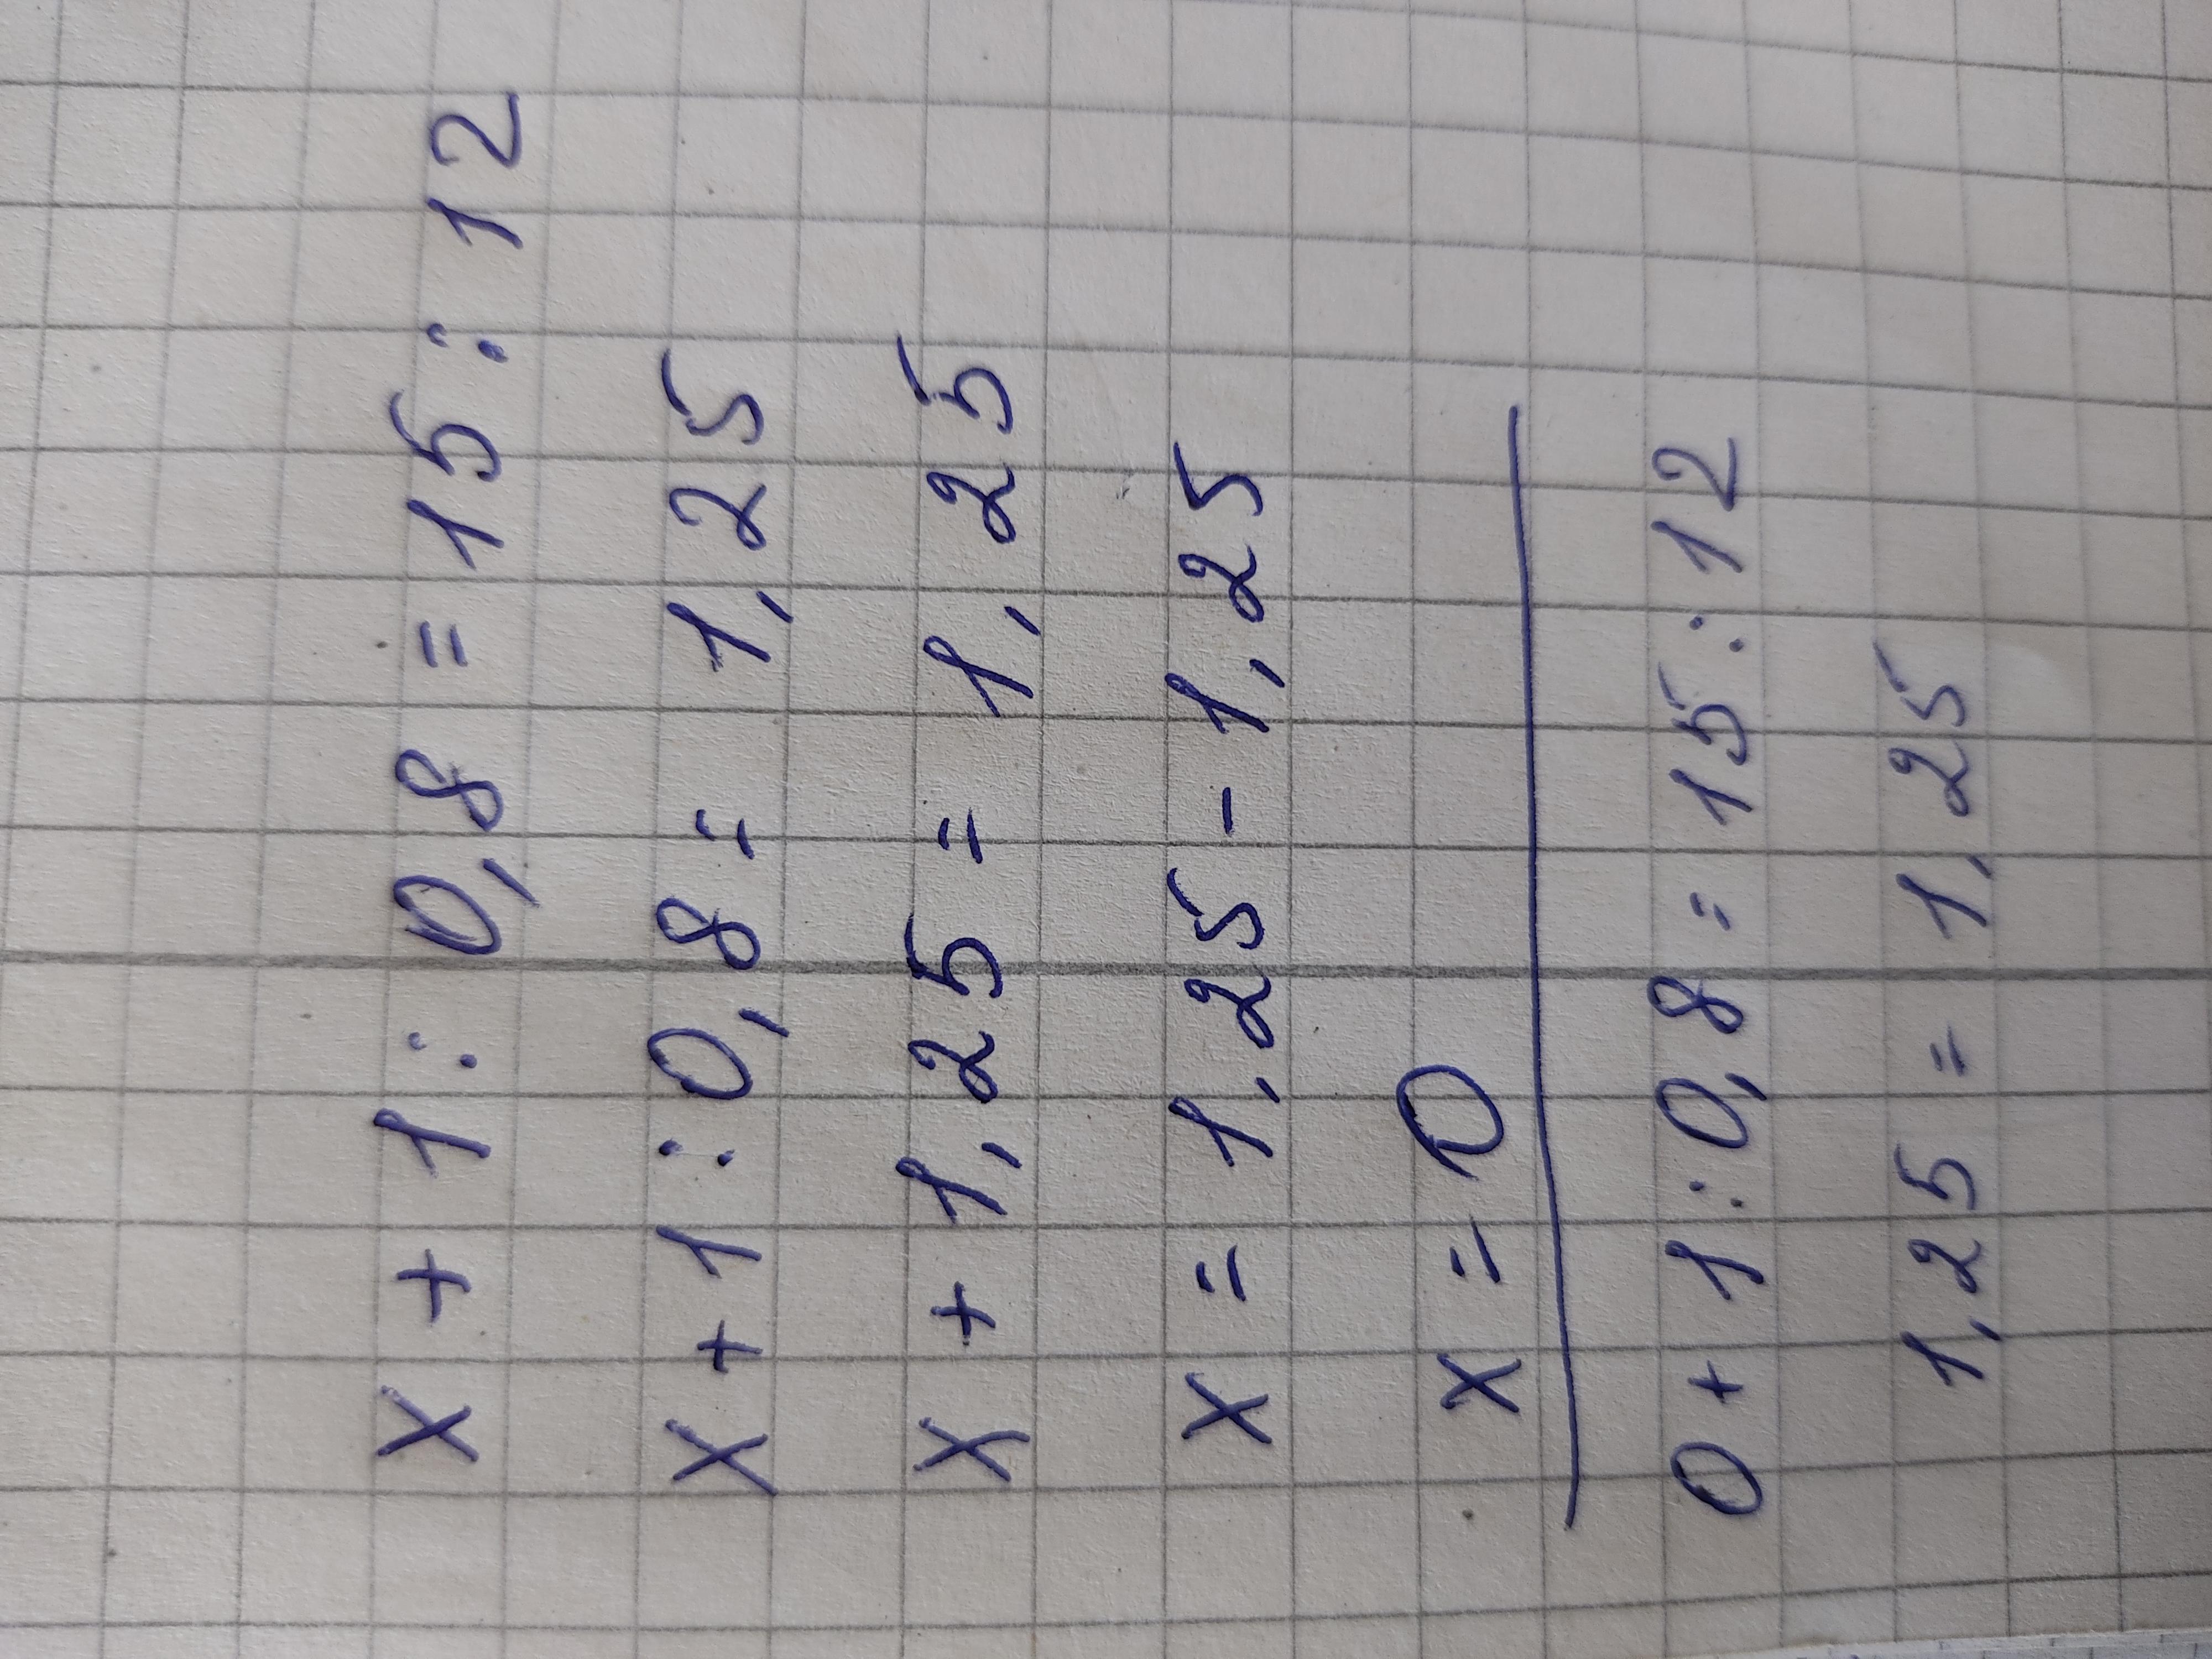 x + 1 : 0,8 = 15 : 12
x + 1 : 0,8 = 1,25
x + 1,25 = 1,25
x = 1,25 - 1,25
x = 0
0 + 1 : 0,8 = 15 : 12
1,25 = 1,25